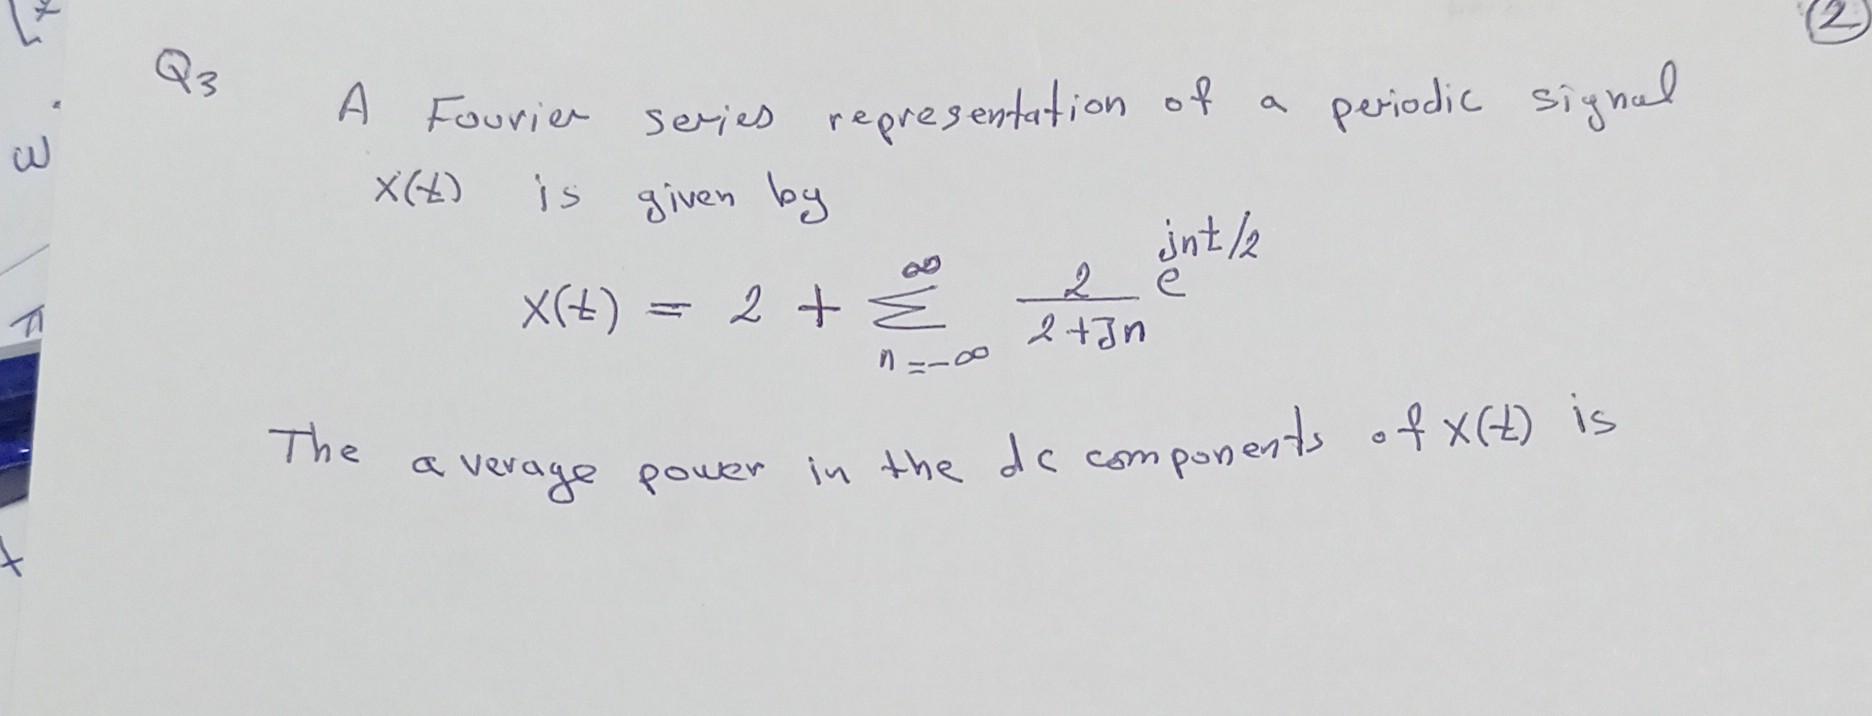 2
Q3
A Fourier series representation of a periodic signal
x(t) is given by
x(t) = 2 + ∑_{n=-∞}^{∞} \frac{2}{2+Jn} e^{jnt/2}
The average power in the dc components of x(t) is
x
w
π
t